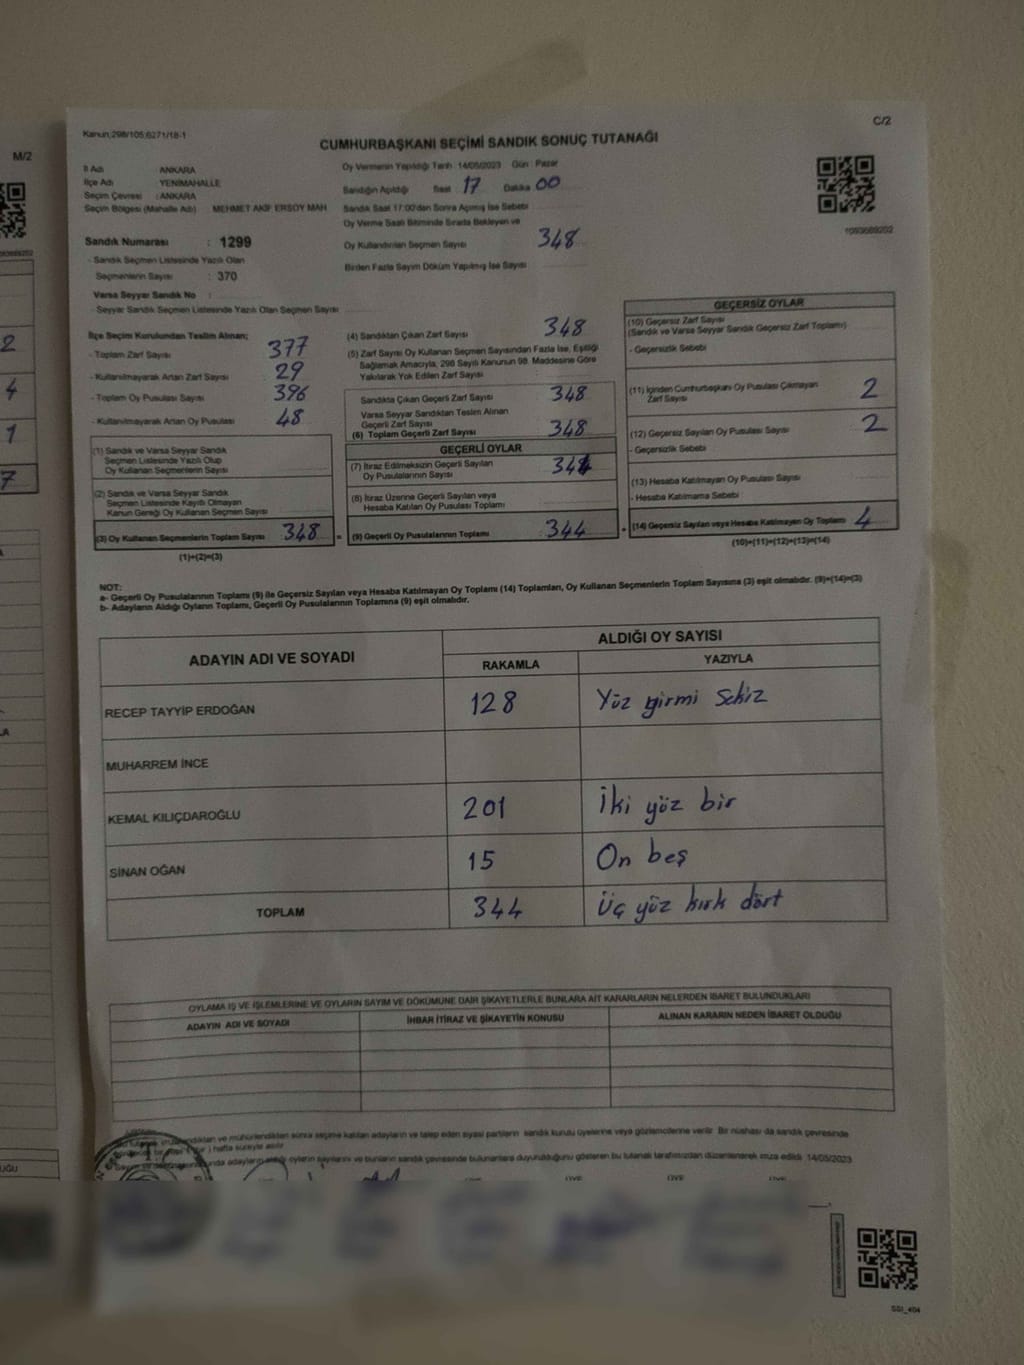 Kanun:298/105;6271/18-1
C/2
CUMHURBAŞKANI SEÇİMİ SANDIK SONUÇ TUTANAĞI
M/2
İl Adı ANKARA
İlçe Adı : YENİMAHALLE
Seçim Çevresi : ANKARA
Seçim Bölgesi (Mahalle Adı) MEHMET AKİF ERSOY MAH
Oy Vermenin Yapıldığı Tarih :14/05/2023 Gün : Pazar
Sandığın Açıldığı Saat 17 Dakika 00
Sandık Saat 17:00'dan Sonra Açılmış İse Sebebi
Oy Verme Saati Bitiminde Sırada Bekleyen ve
Oy Kullandırılan Seçmen Sayısı 348
Birden Fazla Sayım Döküm Yapılmış İse Sayısı
1093689202
Sandık Numarası : 1299
- Sandık Seçmen Listesinde Yazılı Olan
Seçmenlerin Sayısı : 370
Varsa Seyyar Sandık No :
- Seyyar Sandık Seçmen Listesinde Yazılı Olan Seçmen Sayısı
İlçe Seçim Kurulundan Teslim Alınan;
- Toplam Zarf Sayısı 377
- Kullanılmayarak Artan Zarf Sayısı 29
- Toplam Oy Pusulası Sayısı 396
- Kullanılmayarak Artan Oy Pusulası 48
(1) Sandık ve Varsa Seyyar Sandık
Seçmen Listesinde Yazılı Olup
Oy Kullanan Seçmenlerin Sayısı
(2) Sandık ve Varsa Seyyar Sandık
Seçmen Listesinde Kayıtlı Olmayan
Kanun Gereği Oy Kullanan Seçmen Sayısı
(3) Oy Kullanan Seçmenlerin Toplam Sayısı 348
(1)+(2)=(3)
(4) Sandıktan Çıkan Zarf Sayısı 348
(5) Zarf Sayısı Oy Kullanan Seçmen Sayısından Fazla İse, Eşitliği
Sağlamak Amacıyla, 298 Sayılı Kanunun 98. Maddesine Göre
Yakılarak Yok Edilen Zarf Sayısı
Sandıkta Çıkan Geçerli Zarf Sayısı 348
Varsa Seyyar Sandıktan Teslim Alınan
Geçerli Zarf Sayısı
(6) Toplam Geçerli Zarf Sayısı 348
GEÇERLİ OYLAR
(7) İtiraz Edilmeksizin Geçerli Sayılan
Oy Pusulalarının Sayısı 344
(8) İtiraz Üzerine Geçerli Sayılan veya
Hesaba Katılan Oy Pusulası Toplamı
= (9) Geçerli Oy Pusulalarının Toplamı 344
GEÇERSİZ OYLAR
(10) Geçersiz Zarf Sayısı
(Sandık ve Varsa Seyyar Sandık Geçersiz Zarf Toplamı)
- Geçersizlik Sebebi
(11) İçinden Cumhurbaşkanı Oy Pusulası Çıkmayan
Zarf Sayısı 2
(12) Geçersiz Sayılan Oy Pusulası Sayısı 2
- Geçersizlik Sebebi
(13) Hesaba Katılmayan Oy Pusulası Sayısı
- Hesaba Katılmama Sebebi
+ (14) Geçersiz Sayılan veya Hesaba Katılmayan Oy Toplamı 4
(10)+(11)+(12)+(13)=(14)
NOT:
a- Geçerli Oy Pusulalarının Toplamı (9) ile Geçersiz Sayılan veya Hesaba Katılmayan Oy Toplamı (14) Toplamları, Oy Kullanan Seçmenlerin Toplam Sayısına (3) eşit olmalıdır. (9)+(14)=(3)
b- Adayların Aldığı Oyların Toplamı, Geçerli Oy Pusulalarının Toplamına (9) eşit olmalıdır.
ADAYIN ADI VE SOYADI ALDIĞI OY SAYISI
RAKAMLA YAZIYLA
RECEP TAYYİP ERDOĞAN 128 Yüz yirmi sekiz
MUHARREM İNCE
KEMAL KILIÇDAROĞLU 201 İki yüz bir
SİNAN OĞAN 15 On beş
TOPLAM 344 Üç yüz kırk dört
OYLAMA İŞ VE İŞLEMLERİNE VE OYLARIN SAYIM VE DÖKÜMÜNE DAİR ŞİKAYETLERLE BUNLARA AİT KARARLARIN NELERDEN İBARET BULUNDUKLARI
ADAYIN ADI VE SOYADI İHBAR İTİRAZ VE ŞİKAYETİN KONUSU ALINAN KARARIN NEDEN İBARET OLDUĞU
mühürlendikten sonra seçime katılan adayların ve talep eden siyasi partilerin sandık kurulu üyelerine veya gözlemcilerine verilir. Bir nüshası da sandık çevresinde
hafta süreyle asılır.
adayların aldığı oyların sayılarını ve bunların sandık çevresinde bulunanlara duyurulduğunu gösteren bu tutanak tarafımızdan düzenlenerek imza edildi. 14/05/2023
SSI_404
2
4
1
7